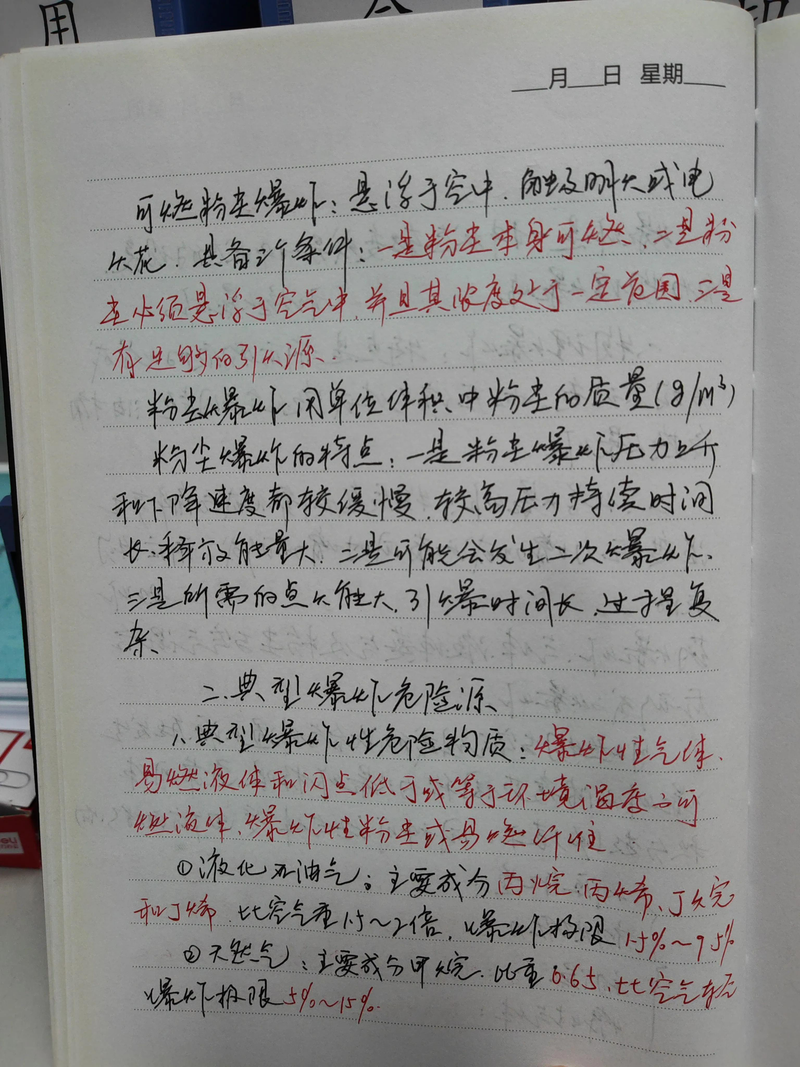 用
月 日 星期
可燃粉尘爆炸：悬浮于空中，触及明火或电
火花．具备3个条件：一是粉尘本身可燃、二是粉
尘必须悬浮于空气中，并且其浓度处于一定范围、三是
有足够的引火源．
粉尘爆炸用单位体积中粉尘的质量(g/m³)
粉尘爆炸的特点：一是粉尘爆炸压力上升
和下降速度都较缓慢，较高压力持续时间
长、释放能量大．二是可能会发生二次爆炸、
三是所需的点火能大，引爆时间长，过程复
杂、
二、典型爆炸危险源
1、典型爆炸性危险物质：爆炸性气体、
易燃液体和闪点低于或等于环境温度的可
燃液体、爆炸性粉尘或易燃纤维
①液化石油气：主要成分丙烷、丙烯、丁烷
和丁烯，比空气重1.5～2倍，爆炸极限1.5%～9.5%
②天然气：主要成分甲烷．比重0.65，比空气轻
爆炸极限5%～15%.